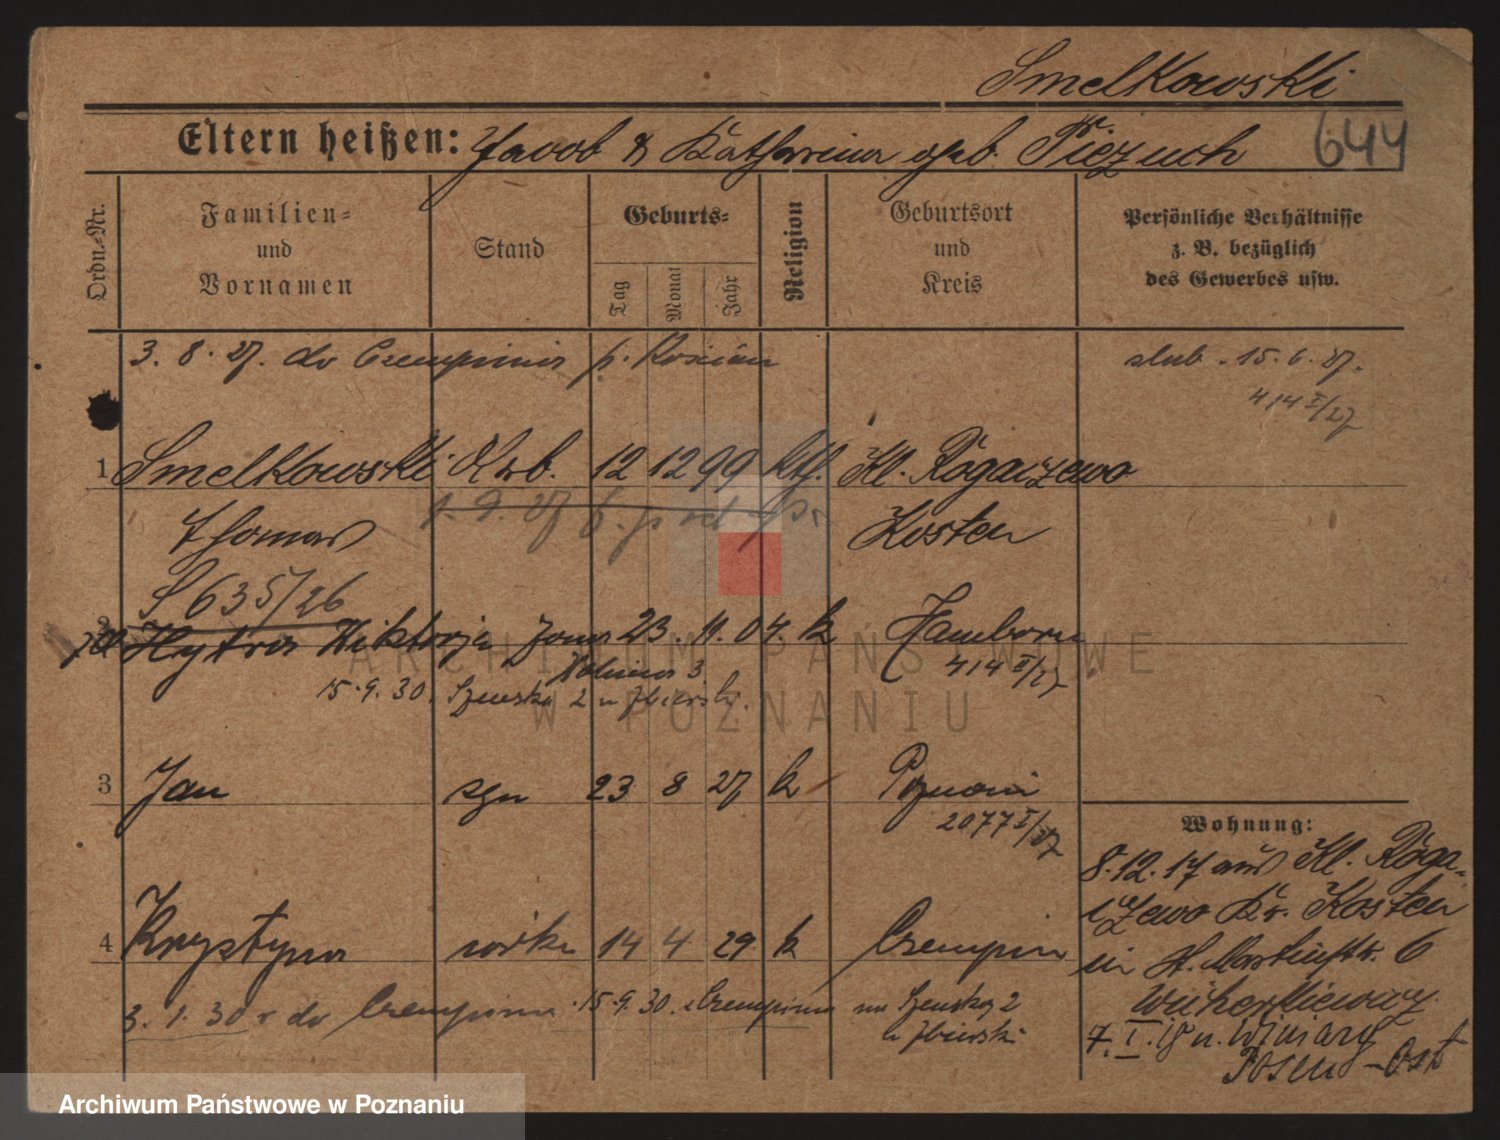 Smelkowski
Eltern heißen: Jacob & Katharina geb. Piezuch 644
Ordn.-Nr.
Familien-
und
Vornamen
Stand
Geburts-
Tag
Monat
Jahr
Religion
Geburtsort
und
Kreis
Persönliche Verhältnisse
z. B. bezüglich
des Gewerbes usw.
3. 8. 27. do Czempinia p. Kościan
ślub. 15. 6. 27.
414 I/27
1 Smelkowski Arb. 12 12 99 kth. Kl. Rogaczewo
1. 9. 27
Thomas Kosten
S 635/26
2 Hytra Wiktorja żona 23. 11. 04. k Hamborn
414 II/27
15. 9. 30. Szewska 2 u Zbierski
3 Jan syn 23 8 27 k Poznań
2077 I/27
Wohnung:
8. 12. 17 aus Kl. Roga-
czewo Kr. Kosten
in St. Martinstr. 6
4 Krystyna córka 14 4 29 k Czempin
3. 1. 30 r do Czempinia 15. 9. 30. z Czempinia na Szewską 2
u Zbierski
7. I. 18 n. Winiary
Posen-Ost
ARCHIWUM PAŃSTWOWE
W POZNANIU
Archiwum Państwowe w Poznaniu